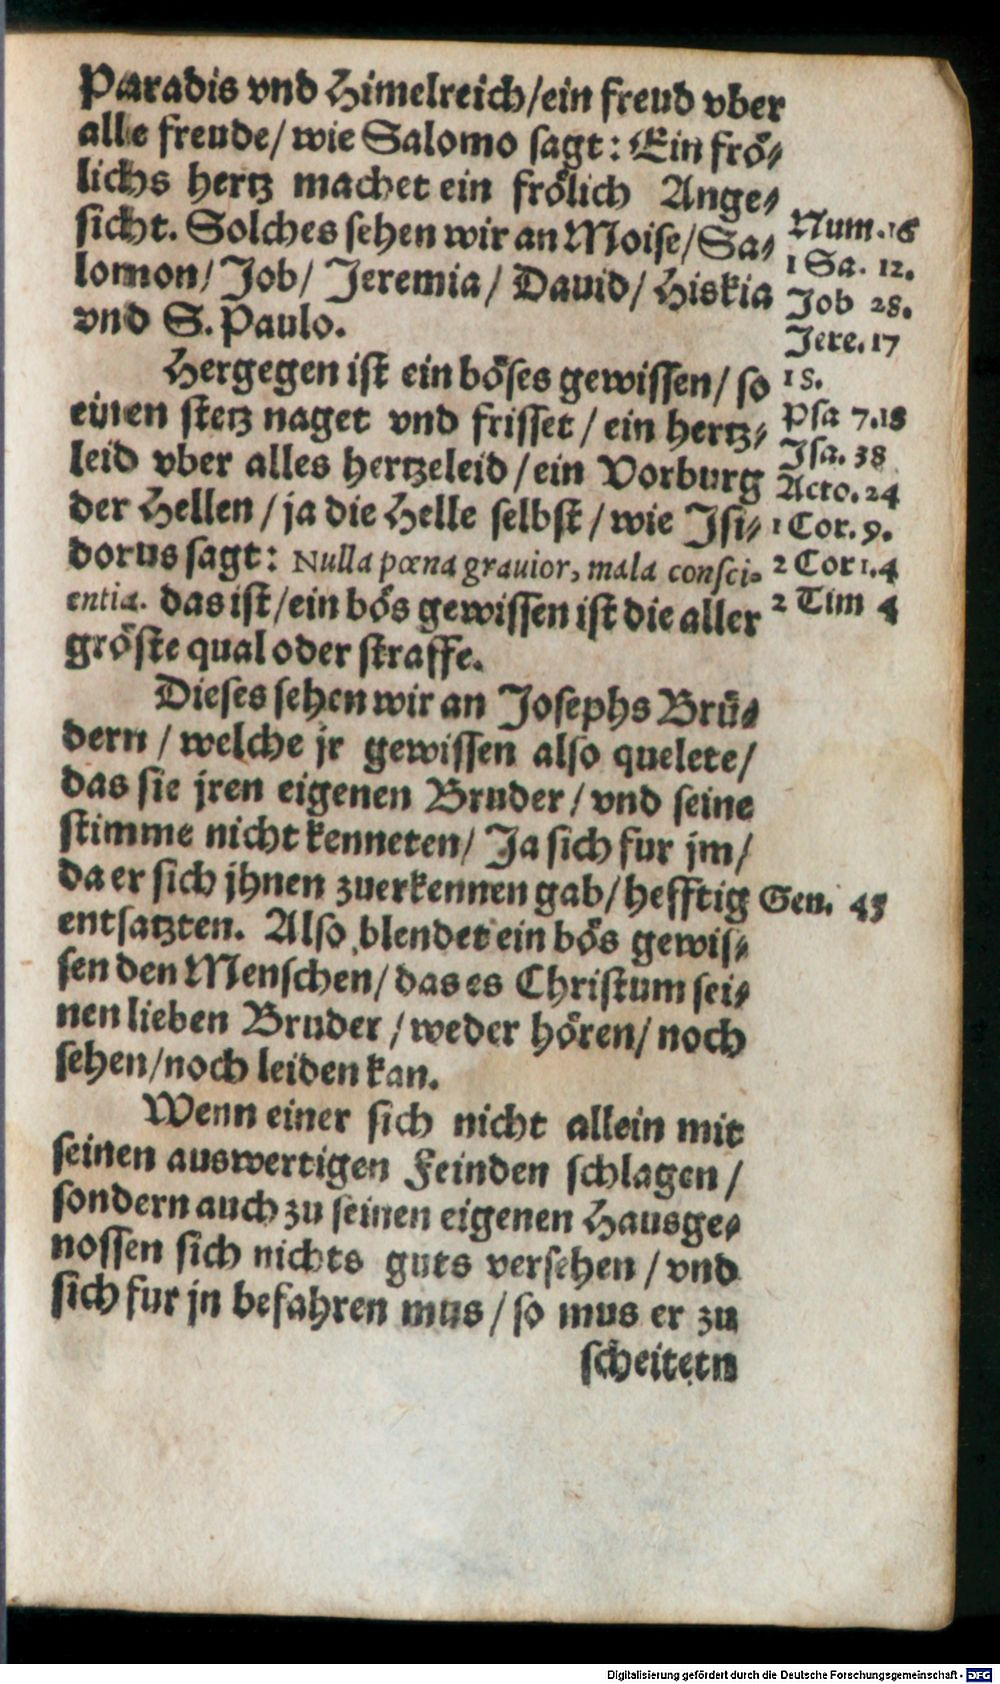 Paradis vnd Himelreich/ein freud vber
alle freude/ wie Salomo sagt: Ein frö-
lichs hertz machet ein frölich Ange-
sicht. Solches sehen wir an Moise/Sa-
lomon/ Job/ Jeremia/ Dauid/ Hiskia
vnd S. Paulo.
Num. 16
1 Sa. 12.
Job 28.
Jere. 17
18.
Psa 7.18
Isa. 38
Acto. 24
1 Cor. 9.
2 Cor 1.4
2 Tim 4
Hergegen ist ein böses gewissen/ so
einen stetz naget vnd frisset/ ein hertz-
leid vber alles hertzeleid/ein Vorburg
der Hellen/ ja die Helle selbst/ wie Isi-
dorus sagt: Nulla pœna grauior, mala consci-
entia. das ist/ein bös gewissen ist die aller
gröste qual oder straffe.
Dieses sehen wir an Josephs Brü-
dern/ welche jr gewissen also quelete/
das sie jren eigenen Bruder/ vnd seine
stimme nicht kenneten/ Ja sich fur jm/
da er sich jhnen zuerkennen gab/ hefftig
entsatzten. Also blendet ein bös gewis-
sen den Menschen/ das es Christum sei-
nen lieben Bruder/ weder hören/ noch
sehen/noch leiden kan.
Gen. 45
Wenn einer sich nicht allein mit
seinen auswertigen Feinden schlagen/
sondern auch zu seinen eigenen Hausge-
nossen sich nichts guts versehen/ vnd
sich fur jn befahren mus/ so mus er zu
scheitern
Digitalisierung gefördert durch die Deutsche Forschungsgemeinschaft - DFG